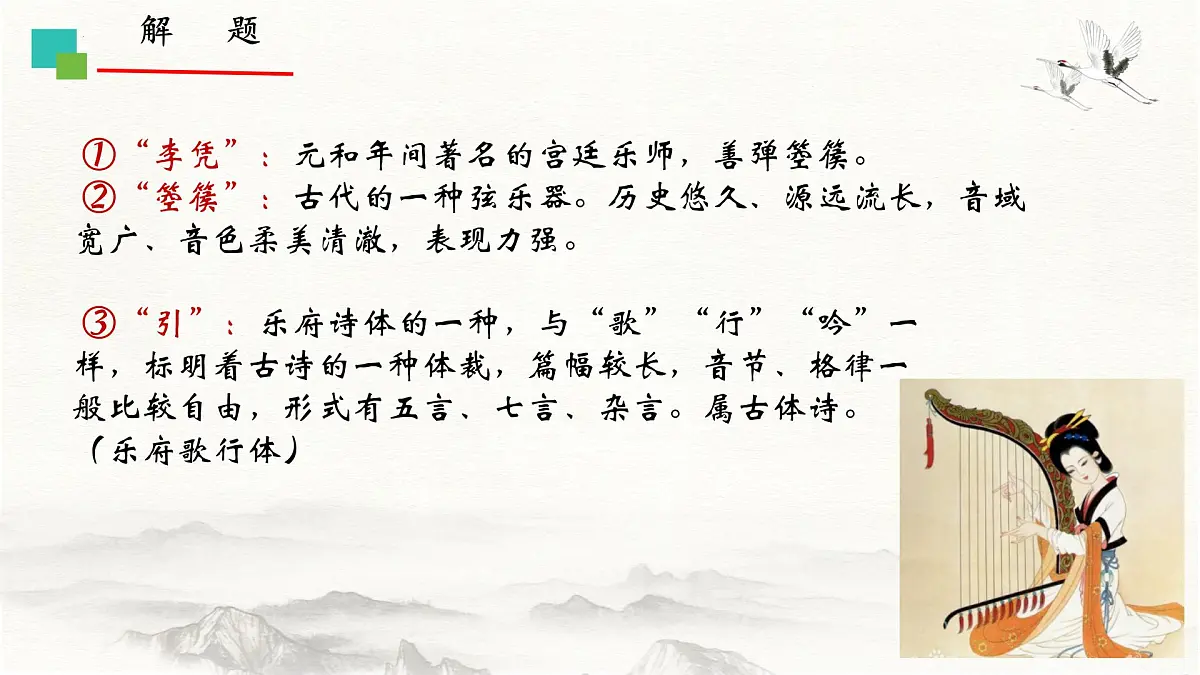 解 题
①“李凭”：元和年间著名的宫廷乐师，善弹箜篌。
②“箜篌”：古代的一种弦乐器。历史悠久、源远流长，音域
宽广、音色柔美清澈，表现力强。
③“引”：乐府诗体的一种，与“歌”“行”“吟”一
样，标明着古诗的一种体裁，篇幅较长，音节、格律一
般比较自由，形式有五言、七言、杂言。属古体诗。
（乐府歌行体）